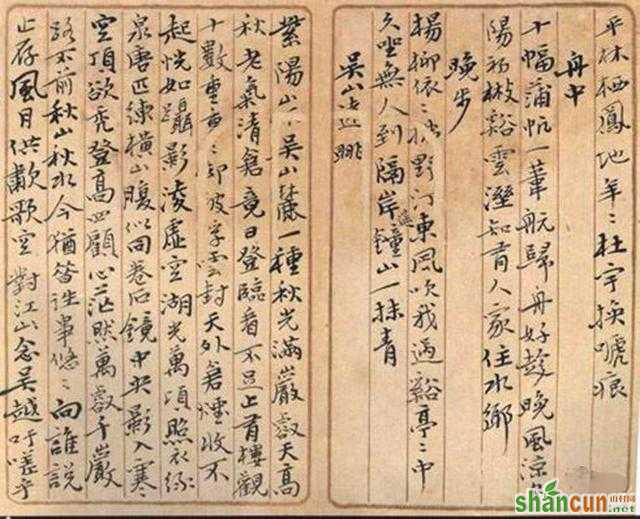 平林栖鳳地年〻杜宇换嗁痕
舟中
十幅蒲帆一葦航歸舟好趁晚風涼
陽初散谿雲溼知有人家住水鄉
晚步
楊柳依〻 野汀東風吹我過谿亭亭中
久坐無人到隔岸鐘山一抹青
吳山 眺
紫陽山 吳山麓一種秋光滿巖壑天高
秋老氣清蒼竟日登臨看不足上有樓觀
十數重 封天外蒼煙收不
起恍如躡影凌虛空湖光萬頃照衣
泉唐匹練橫山腹似同卷石鏡中央影入寒
空頂欲禿登高四顧心茫然萬壑千巖
路不前秋山秋水今猶昔往事悠〻向誰說
止存風月供歗歌空對江山念吳越吁嗟乎
shancun.net
山村网